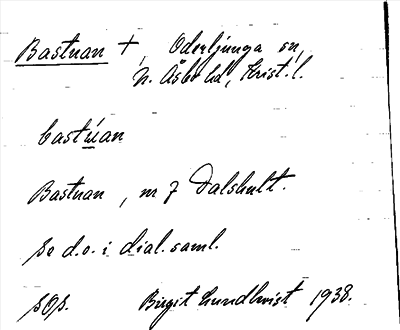 Bastuan +, Oderljunga sn,
N. Åsbo hd, Krist. l.
bastúan
Bastuan, nr 7 Dalshult.
Se d.o. i dial. saml.
sgs. Birgit Lundkvist 1938.